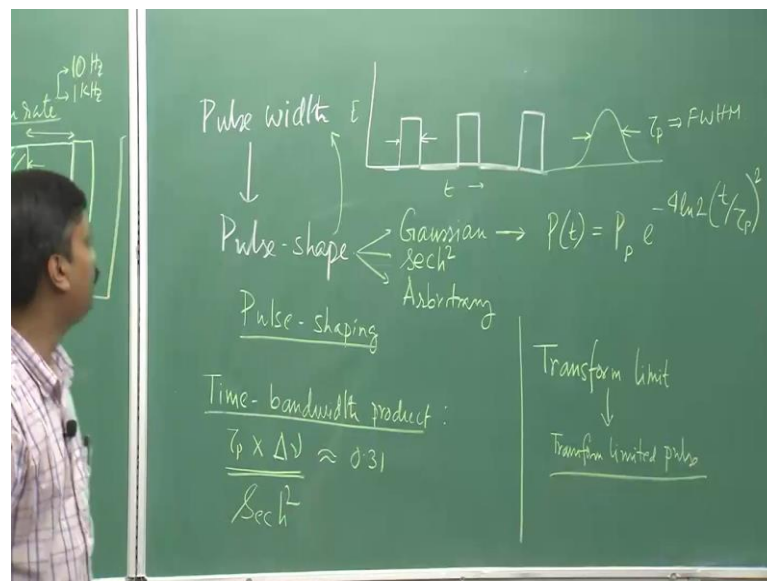 10 Hz
1 kHz
rate
Pulse width [
t →
τp ⇒ FWHM
Pulse-shape
Gaussian → P(t) = Pp e^-4ln2(t/τp)^2
Sech²
Arbitrary
Pulse-shaping
Time-bandwidth product :
τp × Δν ≈ 0.31
Sech²
Transform limit
Transform limited pulse